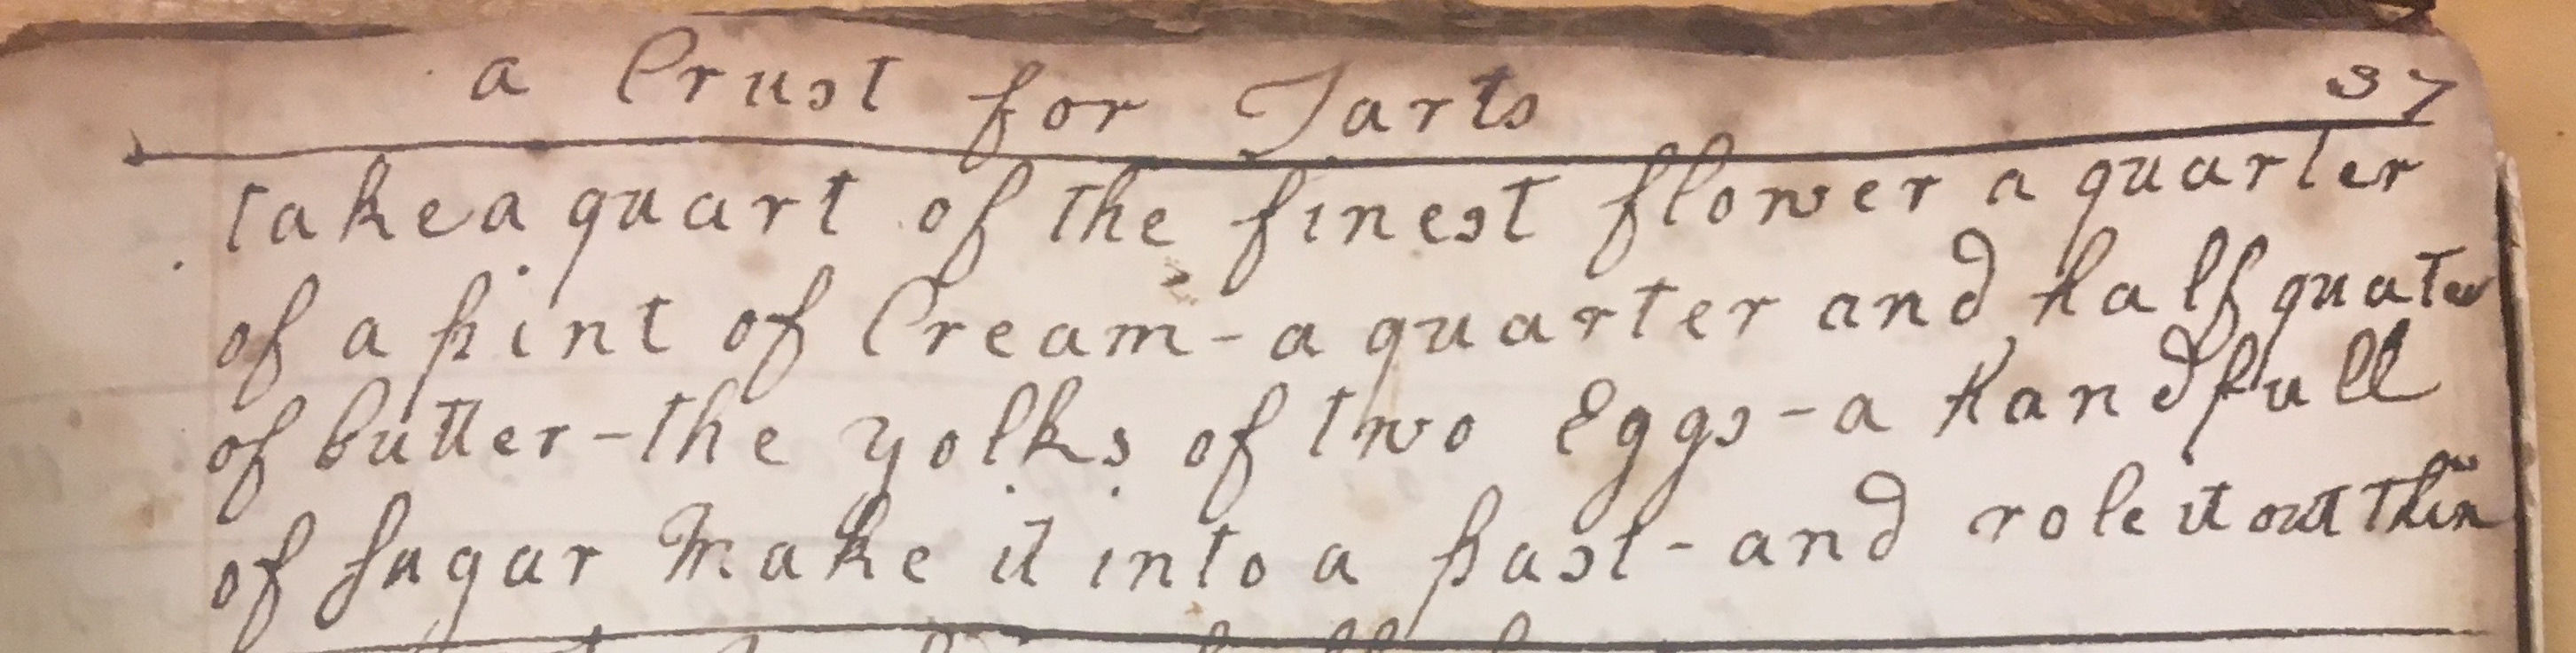 a Crust for Tarts 37
take a quart of the finest flower a quarter
of a pint of Cream - a quarter and half quater
of butter - the yolks of two Eggs - a handfull
of sugar Make it into a past - and role it out thin